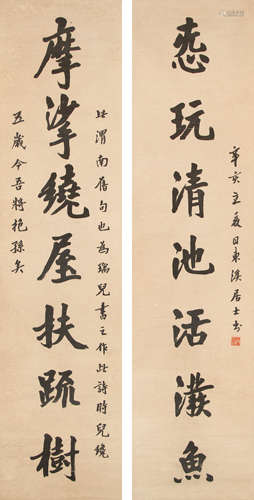 㤅玩清池活潑魚
辛亥立夏日東溪居士書
摩挲繞屋扶疏樹
此渭南舊句也為瑞兒書之作此詩時兒纔
五歲今吾將抱孫矣